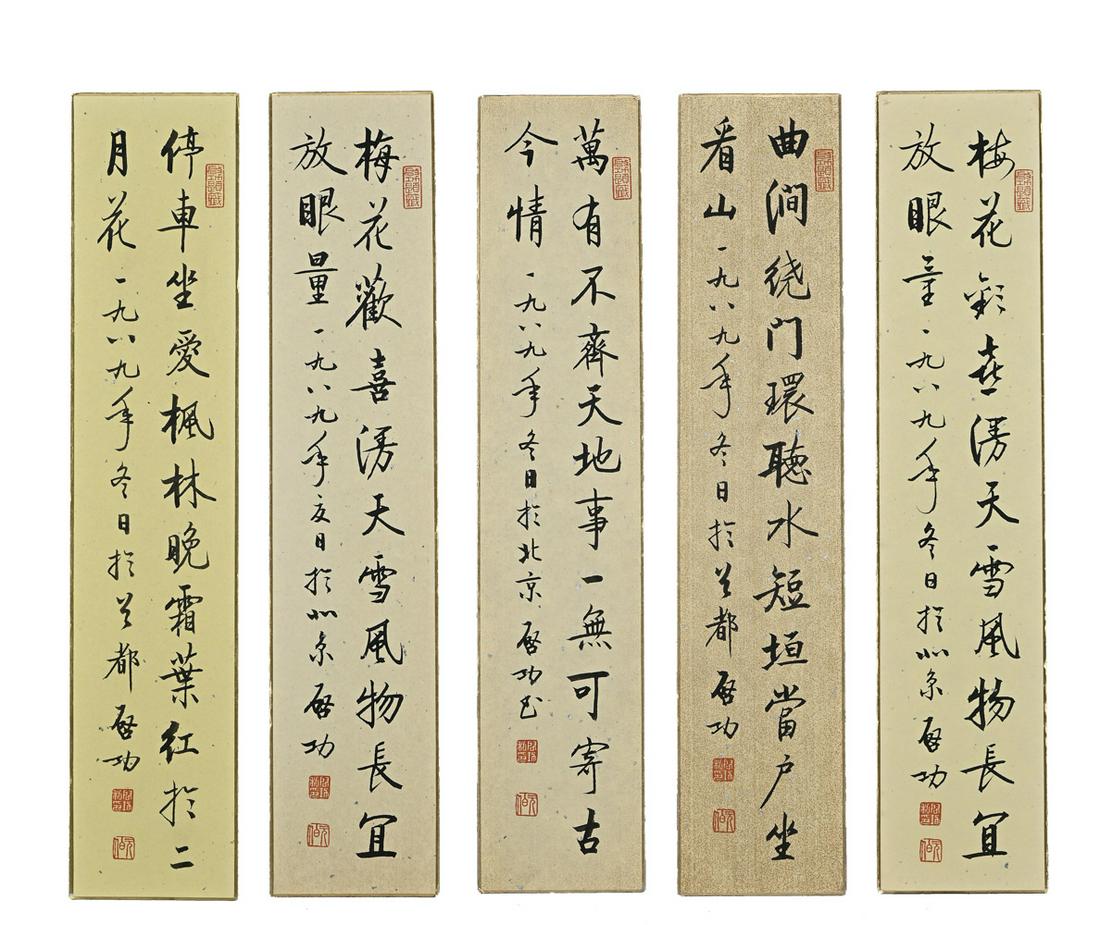 梅花歡喜漫天雪風物長宜
放眼量一九八九年冬日於北京啓功
曲澗绕门環聴水短垣當户坐
看山一九八九年冬日於首都啓功
萬有不齊天地事一無可寄古
今情一九八九年冬日於北京啓功书
梅花歡喜漫天雪風物長宜
放眼量一九八九年夜日於北京啓功
停車坐愛楓林晚霜葉红於二
月花一九八九年冬日於首都啓功